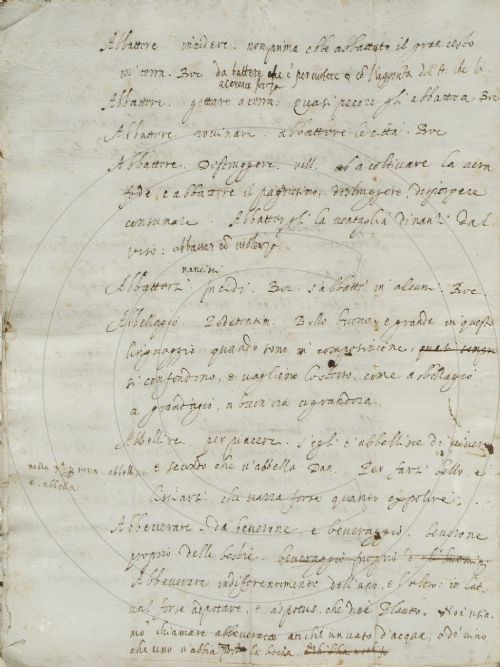 Abbattere. incidere. non prima ebbe abbattuto il gran cesto
in terra. Boc da battere che è percuotere con l'aggiunta dell'A che li
accresce forza
Abbattere. gettare a terra. quasi pecore gli abbattea Boc
Abbattere rovinare. abbattere le città. Boc
Abbattere. Distruggere. vill. a coltivare la vera
fede, e abbattere il paganesimo, distruggere, dispergere
consumare. Abbatter gli la ventaglia dinanzi dal
viso: abbassar con violenza
nanzi
Abbattersi incidi. Boc. s'abbattè in alcuni Boc.
Abbellagio. Pedetentim. Bello, buono, e grande in questo
linguaggio quando sono in composizione, quasi sempre
si confondono, e vagliono lo stesso, come a bellagio
a grand'agio, a buon'ora a grand'ora.
Abbellire per piacere. s'egli è abbellire di
nella terra abbellire
e abbella
e secondo che v'abbella Dan. Per farsi bello e
lisciarsi che varrà forse quanto expolire.
Abbeverare. da beverone, e beveraggio. beverone
proprio delle bestie. beveraggio proprio
Abbeverare indifferentemente dell'uno, e l'altro: in lat.
val forse adpotare, e adpotus, che dice Plauto. Noi usia
mo chiamare abbeverato anche un vaso d'acqua, o di vino
che uno n'abbia la bocca.